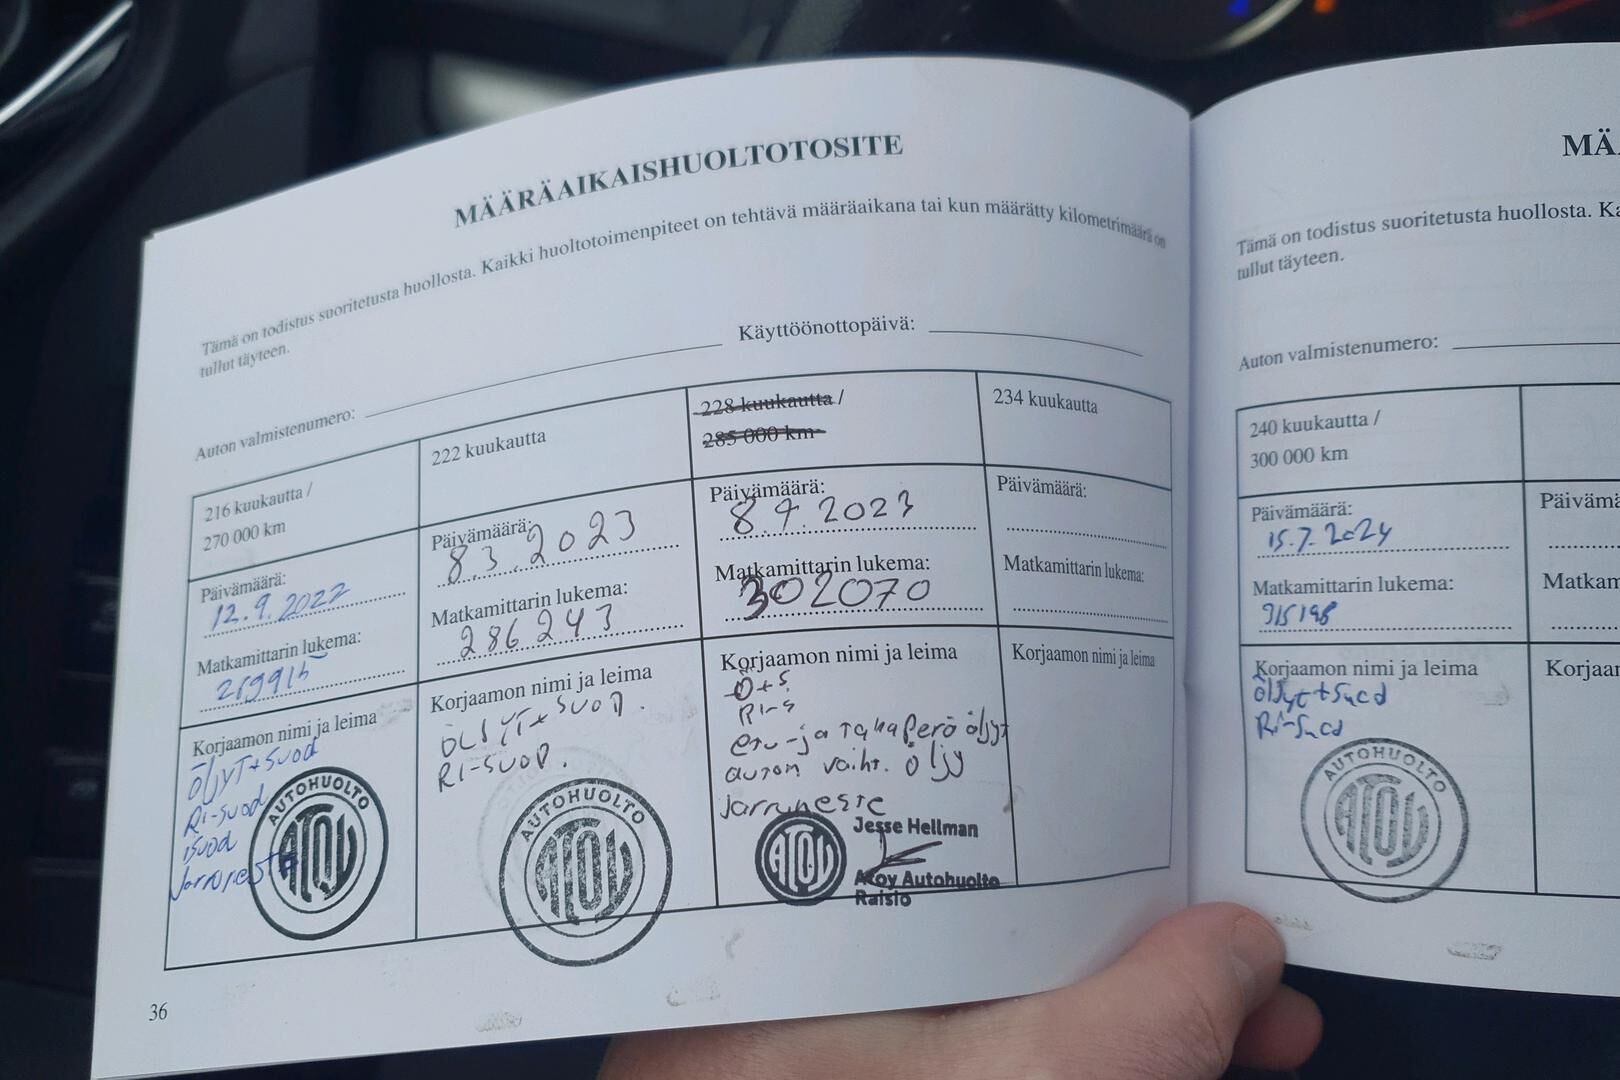 MÄÄRÄAIKAISHUOLTOTOSITE
Tämä on todistus suoritetusta huollosta. Kaikki huoltotoimenpiteet on tehtävä määräaikana tai kun määrätty kilometrimäärä on
tullut täyteen.
Auton valmistenumero: Käyttöönottopäivä:
216 kuukautta /
270 000 km
Päivämäärä:
12.9.2022
Matkamittarin lukema:
Korjaamon nimi ja leima
ÖljyT+Suod
Ri-suod
isuod
Jarroneste
AUTOHUOLTO
ATOY
222 kuukautta
Päivämäärä:
8.3.2023
Matkamittarin lukema:
286243
Korjaamon nimi ja leima
ÖLJYT+SUOD.
RI-SUOD.
AUTOHUOLTO
ATOY
228 kuukautta /
285 000 km
Päivämäärä:
8.9.2023
Matkamittarin lukema:
302070
Korjaamon nimi ja leima
Ö+S.
Ri-S
etu-ja taka perö öljyt
autom vaiht. öljy
Jarruneste
ATOY
Jesse Hellman
Atoy Autohuolto
Raisio
234 kuukautta
Päivämäärä:
Matkamittarin lukema:
Korjaamon nimi ja leima
36
MÄ
Tämä on todistus suoritetusta huollosta. Ka
tullut täyteen.
Auton valmistenumero:
240 kuukautta /
300 000 km
Päivämäärä:
15.7.2024
Matkamittarin lukema:
315198
Korjaamon nimi ja leima
öljyt+Suod
Ri-Suod
AUTOHUOLTO
ATOY
Päivämä
Matkam
Korjaar